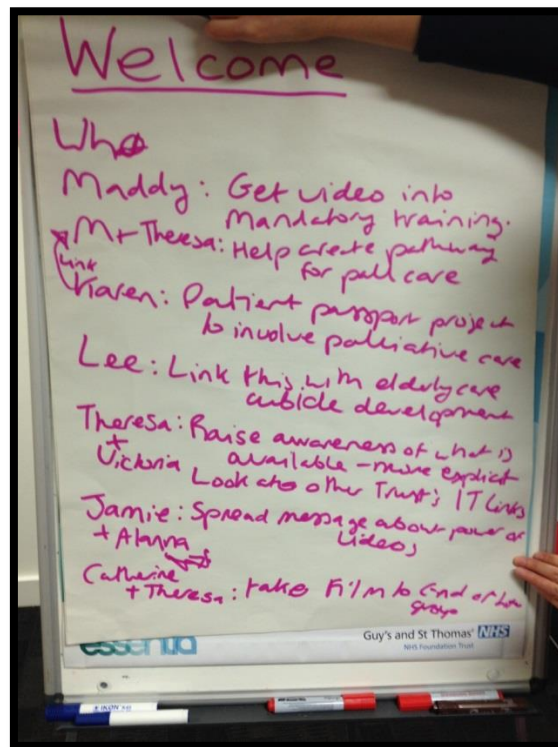 Welcome
Who
Maddy: Get video into
Mandatory training.
M + Theresa: Help create pathway
for pall care
Link
Karen: Patient passport project
to involve palliative care
Lee: Link this with elderly care
cubicle development
Theresa: Raise awareness of what is
+
Victoria available - more explicit
Look at other Trust's IT links
Jamie: Spread message about power of
+ Alanna videos
Catherine
+ Theresa: take Film to End of
group
essentia
Guy's and St Thomas' NHS
NHS Foundation Trust